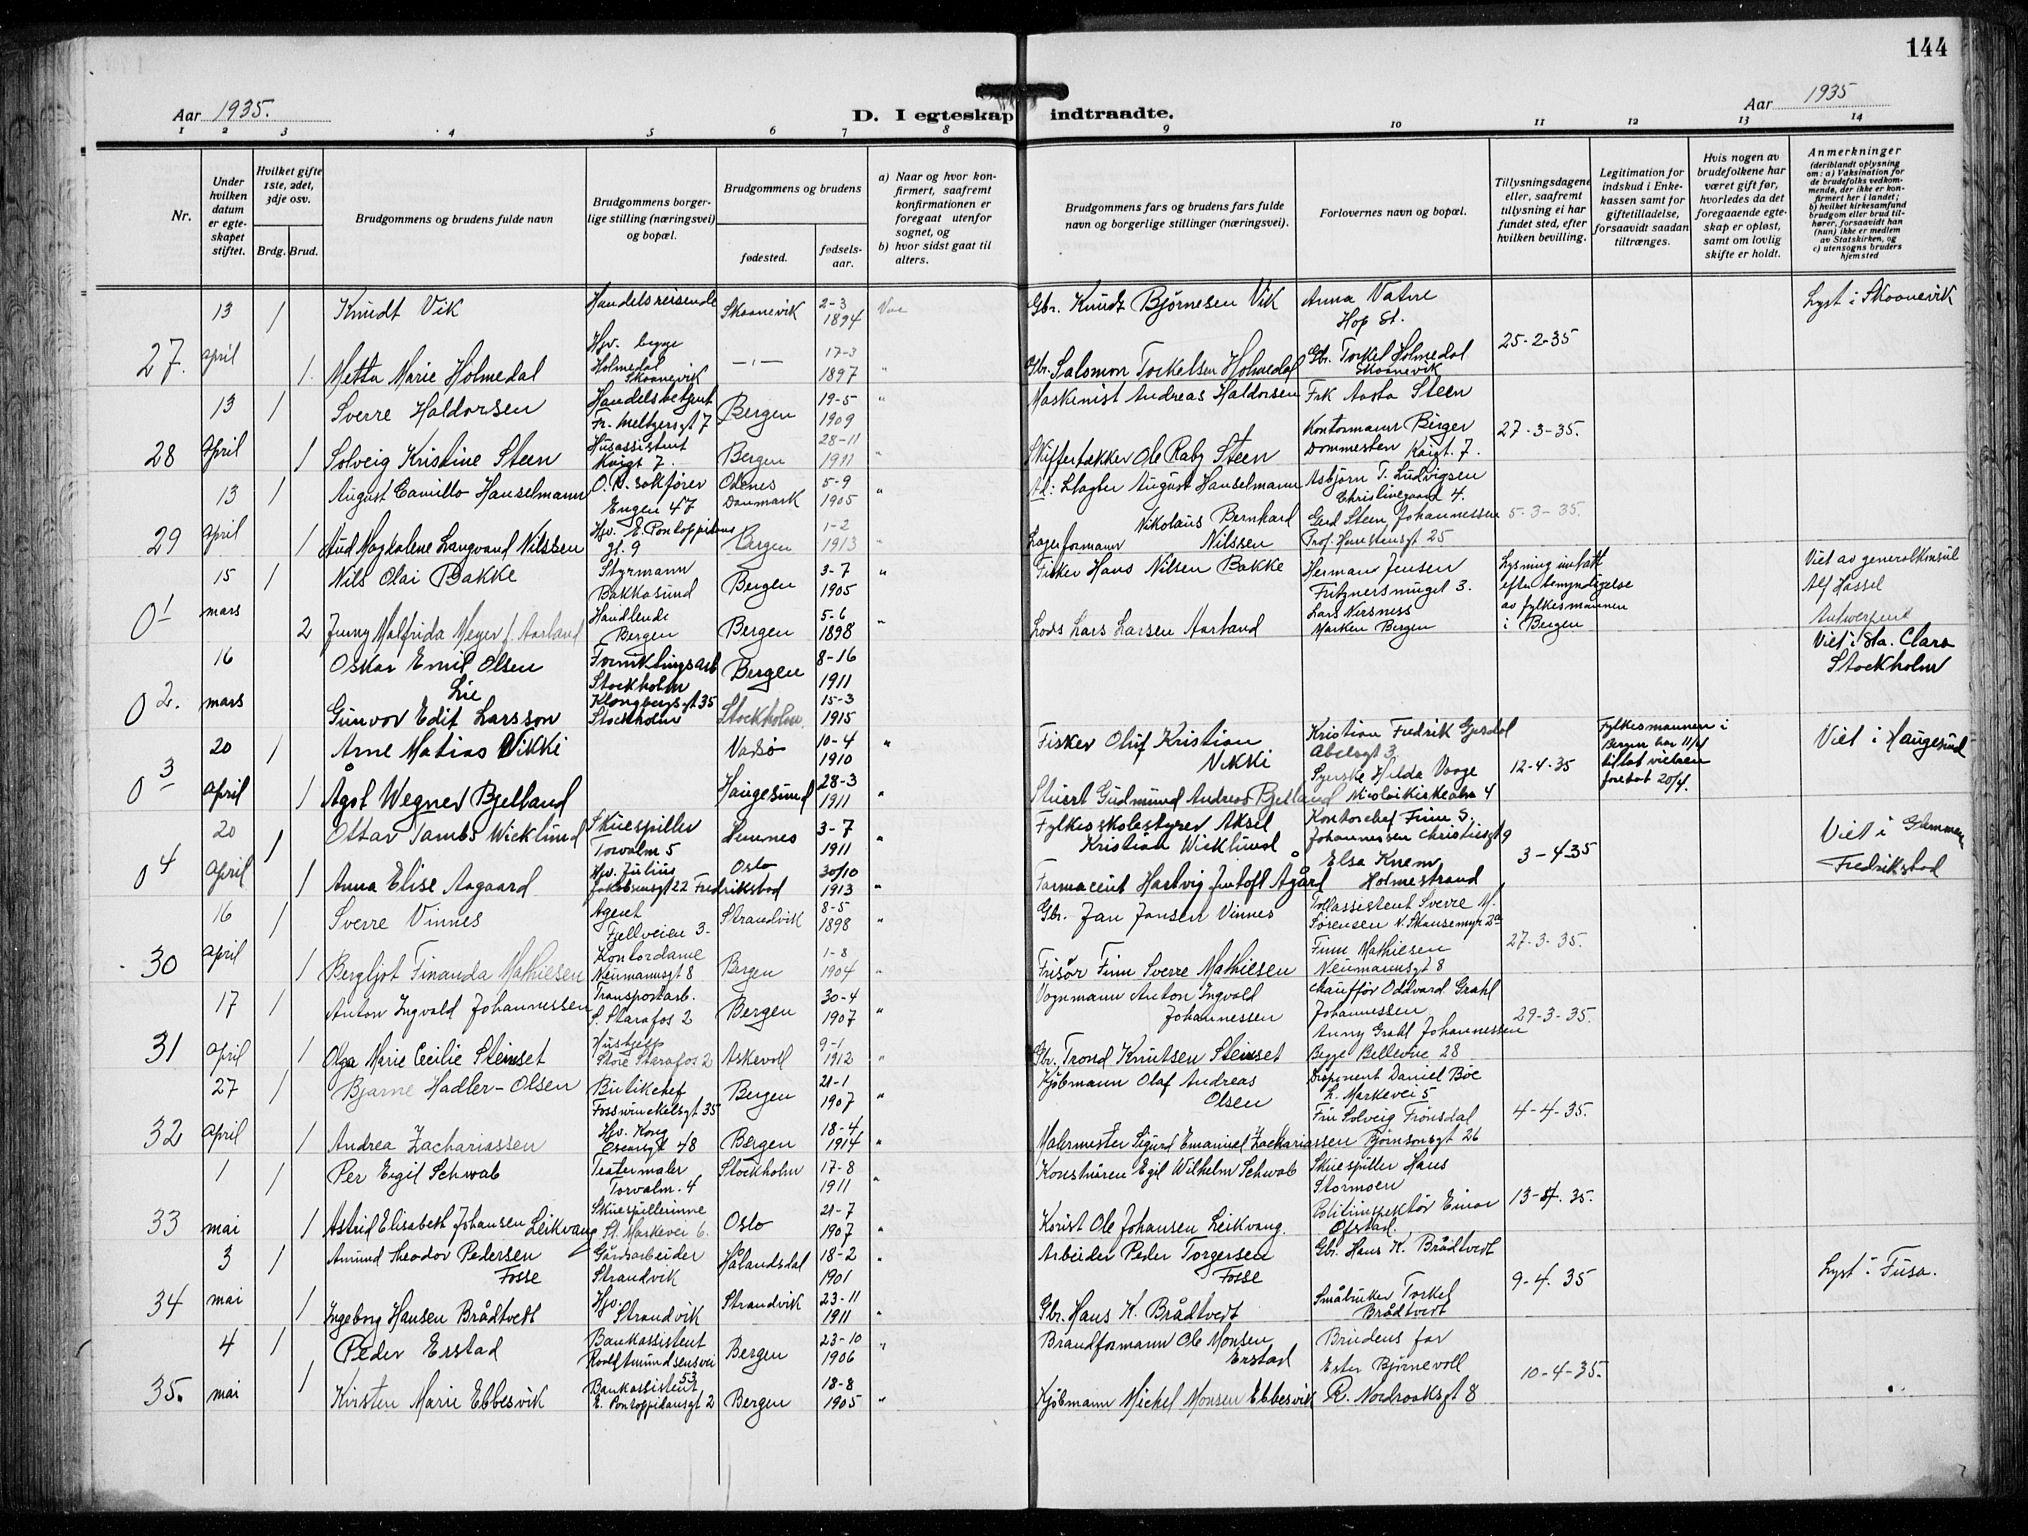 144
Aar 1935.
D. I egteskap indtraadte.
Aar 1935
1 2 3 4 5 6 7 8 9 10 11 12 13 14
Nr.
Under hvilken datum er egteskapet stiftet.
Hvilket gifte 1ste, 2det, 3dje osv.
Brdg. Brud.
Brudgommens og brudens fulde navn
Brudgommens borgerlige stilling (næringsvei) og bopæl.
Brudgommens og brudens
fødested.
fødselsaar.
a) Naar og hvor konfirmert, saafremt konfirmationen er foregaat utenfor sognet, og
b) hvor sidst gaat til alters.
Brudgommens fars og brudens fars fulde navn og borgerlige stillinger (næringsvei).
Forlovernes navn og bopæl.
Tillysningsdagene eller, saafremt tillysning ei har fundet sted, efter hvilken bevilling.
Legitimation for indskud i Enkekassen samt for giftetilladelse, forsaavidt saadan tiltrænges.
Hvis nogen av brudefolkene har været gift før, hvorledes da det foregaaende egteskap er opløst, samt om lovlig skifte er holdt.
Anmerkninger
(deriblandt oplysning om: a) Vaksination for de brudefolks vedkommende, der ikke er konfirmert her i landet; b) hvilket kirkesamfund brudgom eller brud tilhører, forsaavidt han (hun) ikke er medlem av Statskirken, og c) utensogns bruders hjemsted
13 1 Knudt Vik Handelsreisende Skaanevik 2-3 1894 Gbr. Knudt Bjørnesen Vik Anna Vatne Hop St. Lyst i Skaanevik
27. april 1. Metta Marie Holmedal Hjv. begge Holmedal Skaanevik — " — 17-3 1897 " Gbr. Salomon Torkelsen Holmedal Gbr. Torkel Holmedal Skaanevik 25-2-35
13 1 Sverre Haldorsen Handelsbetjent Fr. Meltzersgt 7 Bergen 19-5 1909 " Maskinist Andreas Haldorsen Frk Aasta Steen
28 April 1 Solveig Kristine Steen Husassistent Kaigt 7. Bergen 28-11 1911 " Skiffertækker Ole Raby Steen Kontormann Birger Dommesten Kaigt. 7. 27-3-35.
13 1 August Camillo Hanselmann Engen 47 Odenes Danmark 5-9 1905 " August Hanselmann Asbjørn T. Ludvigsen Christinegaard 4.
29 April 1 Aud Magdalene Langvand Nilssen Hjv. E. Pontoppidans gt. 9 Bergen 1-2 1913 " Lagerformann Nikolaus Bernhard Nilssen Gerd Steen Johannessen Prof. Hanstensgt 25 5-3-35.
15 1 Nils Olai Bakke Styrmann Bakkasund Bergen 3-7 1905 " Fisker Hans Nilsen Bakke Herman Jensen Fritznersmuget 3. Lysning unlatt efter bemyndigelse av fylkesmannen i Bergen Viet av generalkonsul Alf Hassel Antwerpen
0 1 mars 2 Jenny Malfrida Meyer f. Aarland Handlende Bergen Bergen 5-6 1898 " Lods Lars Larsen Aarland Lars Nersness Marken Bergen
16 Oskar Emil Olsen Lie Forniklingsarb Stockholm Bergen 8-16 1911 Viet i Sta. Clara Stockholm
0 2. mars Gunvor Edit Larsson Klongbergsgt 35 Stockholm Stockholm 15-3 1915
20 1 Arne Matias Nikki Vadsø 10-4 1910 " Fisker Oluf Kristian Nikki Kristian Fredrik Gjerdal Abelsgt 3 Fylkesmannen i Bergen har 11/4 tillat vielsen foretat 20/4. Viet i Haugesund
0 3 April 1 Ågot Wegner Bjelland Haugesund 28-3 1911 " Stuert Gudmund Andreas Bjelland Syerske Hilda Vaage Nicolaikirkealm 4 12-4-35
20 1 Ottar Tambs Wicklund Skuespiller Torvalm 5 Hemnes 3-7 1911 " Fylkesskolestyrer Aksel Kristian Wicklund Kontorchef Finn S. Johannessen Christiesgt 9 Viet i Glemmen Fredrikstad
0 4 April 1 Anna Elise Aagaard Hjv. Julius Jakobsensgt 22 Fredrikstad Oslo 30/10 1913 " Farmaceut Hartvig Jentoft Ågård Elsa Knem Holmestrand 3-4-35
16 1 Sverre Vinnes Agent Fjellveien 3- Strandvik 8-5 1898 " Gbr. Jan Jansen Vinnes Tollassistent Sverre M. Sørensen N. Skansemyr 2a
30 April 1 Bergljot Finanda Mathiesen Kontordame Neumannsgt 8 Bergen 1-8 1904 " Frisør Finn Sverre Mathiesen Finn Mathiesen Neumannsgt 8 27-3-35.
17 1 Anton Ingvald Johannessen Transportarb. S. Starafos 2 Bergen 30-4 1907 " Vognmann Anton Ingvald Johannessen Chauffør Oddvard Grahl Johannessen 29-3-35.
31 April 1 Olga Marie Cecilie Steinset Hushjelp Store Starafos 2 Askevoll 9-1 1912 " Gbr. Trond Knutsen Steinset Anny Grahl Johannessen Begge Bellevue 28
27 1 Bjarne Hadler-Olsen Butikchef Fosswinckelsgt 35 Bergen 21-1 1907 " Kjøbmann Olaf Andreas Olsen Disponent Daniel Bøe L. Markevei 5
32 April 1 Andrea Zachariassen Hjv. Kong Oscarsgt 48 Bergen 18-4 1914 " Malermester Sigurd Emanuel Zachariassen Fru Solveig Frønsdal Bjørnsonsgt 26 4-4-35.
1 1 Per Eigil Schwab Teatermaler Torvalm. 4 Stockholm 17-8 1911 " Egil Wilhelm Schwab Skuespiller Hans Stormoen
33 mai 1 Astrid Elisabeth Johansen Leikvang Skuespillerinne St. Markevei 6. Oslo 21-7 1907 " Korist Ole Johansen Leikvang. Politiinspektør Einar Ofstad. 13-4-35.
3 1 Amund Theodor Pedersen Fosse Gårdsarbeider Strandvik Hålandsdal 18-2 1901 " Arbeider Peder Torgersen Fosse Gbr. Hans K. Brådtvedt Lyst i Fusa.
34 mai 1 Ingeborg Hansen Brådtvedt Hjv. Strandvik Strandvik 23-11 1911 " Gbr. Hans K. Brådtvedt Småbruker Torkel Brådtvedt 9-4.35
4 1 Peder Erstad Bankassistent Roald Amundsensvei 53 Bergen 23-10 1906 " Brandformann Ole Monsen Erstad Brudens far
35. mai 1 Kirsten Marie Ebbesvik Bankassistent E. Pontoppidansgt 2 Bergen 18-8 1905 " Kjøbmann Mickel Monsen Ebbesvik Ester Bjørnevoll R. Nordraaksgt 8 10-4-35.